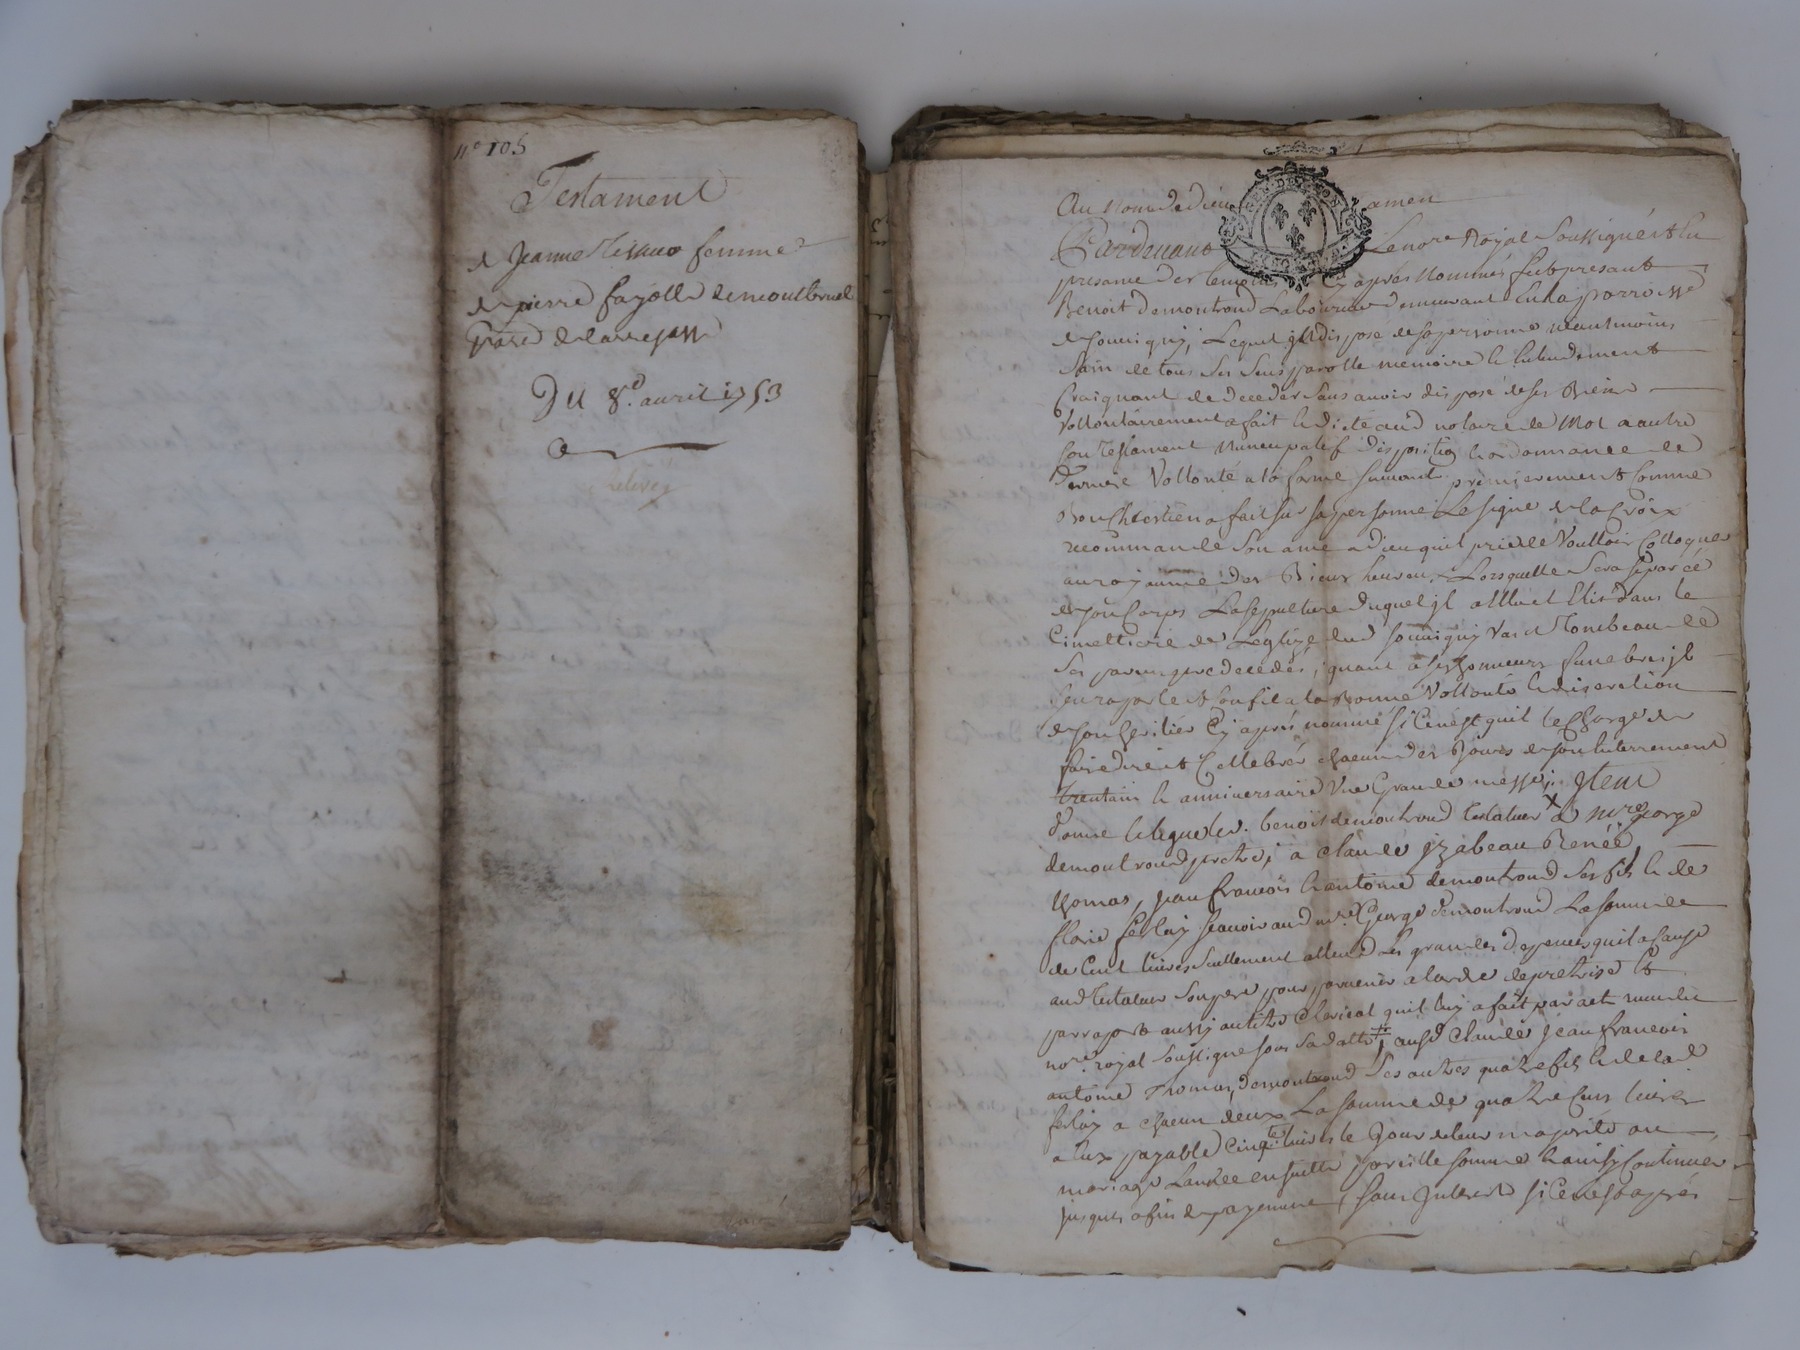 n° 105
Testament
de Jeanne femme
de pierre fayolle demontbrual
Du 8e. auril 1753
relevé
Au Nom de dieu amen
Pardeuant Lenore. Royal Soussigné et En
presance des temoins Cy après Nommés fut presant
Benoit demontrond Laboureur demeurant En la parroisse
de Souuigny, Lequel jldispose desapersonne neantmoins
Sain de tous Ses Sens parolle memoire & Entendement
Craignant de deceder Sans auoir dispose de ses Biens
Vollontairement a fait & dicté aud notaire de Mot a autre
Son Testament Nuncupatif disposition & ordonnance de
derniere Vollonté a la forme Suiuant. premierement Comme
Bon Chrestien a fait sur sa personne Le signe de la Croix
recommande Son ame a dieu quil prie de Voulloir Colloquer
au royaume des Bien heureux Lorsquelle Sera separée
de son Corps La sepulture duquel jl a Elu et Elit dans le
Cimettiere de Leglize dud Souuigny Vas et Tombeau de
Ses parens predecedés, quant a ses honneurs funebres jl
Sen raporte et Confie a la Bonne Vollonté & discretion
de son heritier Cy après nommé si Cenést quil le Charge de
faire dire et Cellebrer chacun des Jours de son Enterrement
trentain & anniuersaire Vne Grande messe; Jtem
donne & legue led. benoit demontrond testateur à mre George
demontrond pretre, a claude jzabeau Renée
thomas, jean francois & antoine demontrond Ses fils & de
florie ferlay scauoir aud mre. George demontrond La somme de
de Cent liures Seullement attend Les grandes depences quil a Causé
aud testateur Son pere pour paruenir a lordre de pretrise Et
par raport aussy au titre Clerical quil luy a fait par acte receu du
nore. royal Soussigne sous Sa datte; ausd Claude jean francois
antoine Thomas, demontrond Ses autres quatre fils & de lad
ferlay a chacun deux La somme de quatre Cens liures
a Eux payable Cinqte. liures le Jour de leur majorité ou
mariage Lannée ensuitte pareille somme & ainsy Continuer
jusques a fin de payement sans Jnterest si Cenést après